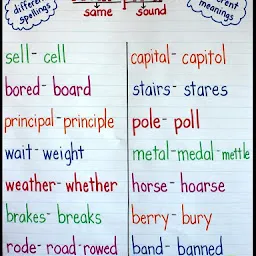 different
spellings
same sound
meanings
sell- cell
bored- board
principal-principle
wait- weight
weather-whether
brakes- breaks
rode- road-rowed
capital- capitol
stairs- stares
pole- poll
metal-medal-mettle
horse- hoarse
berry- bury
band- banned